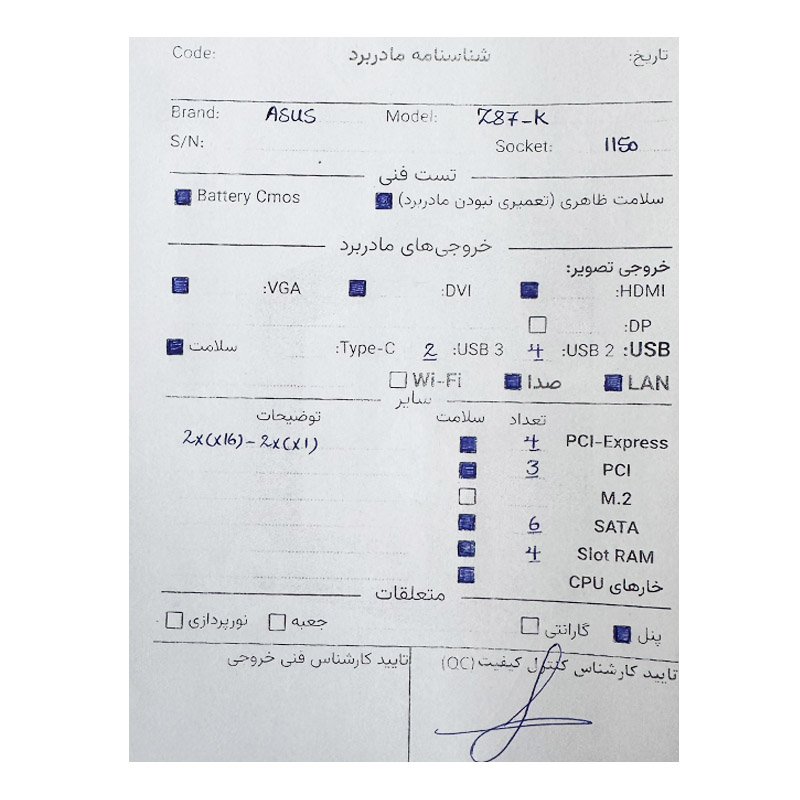 تاریخ: شناسنامه مادربرد Code:
Brand: ASUS Model: Z87-K
S/N: Socket: 1150
تست فنی
سلامت ظاهری (تعمیری نبودن مادربرد) Battery Cmos
خروجی‌های مادربرد
خروجی تصویر:
HDMI: DVI: VGA:
DP:
USB: USB 2: 4 USB 3: 2 Type-C: سلامت
LAN صدا Wi-Fi
سایر
تعداد سلامت توضیحات
PCI-Express 4 2x(x16)-2x(x1)
PCI 3
M.2
SATA 6
Slot RAM 4
خارهای CPU
متعلقات
پنل گارانتی جعبه نورپردازی
تایید کارشناس کنترل کیفیت (QC) تایید کارشناس فنی خروجی